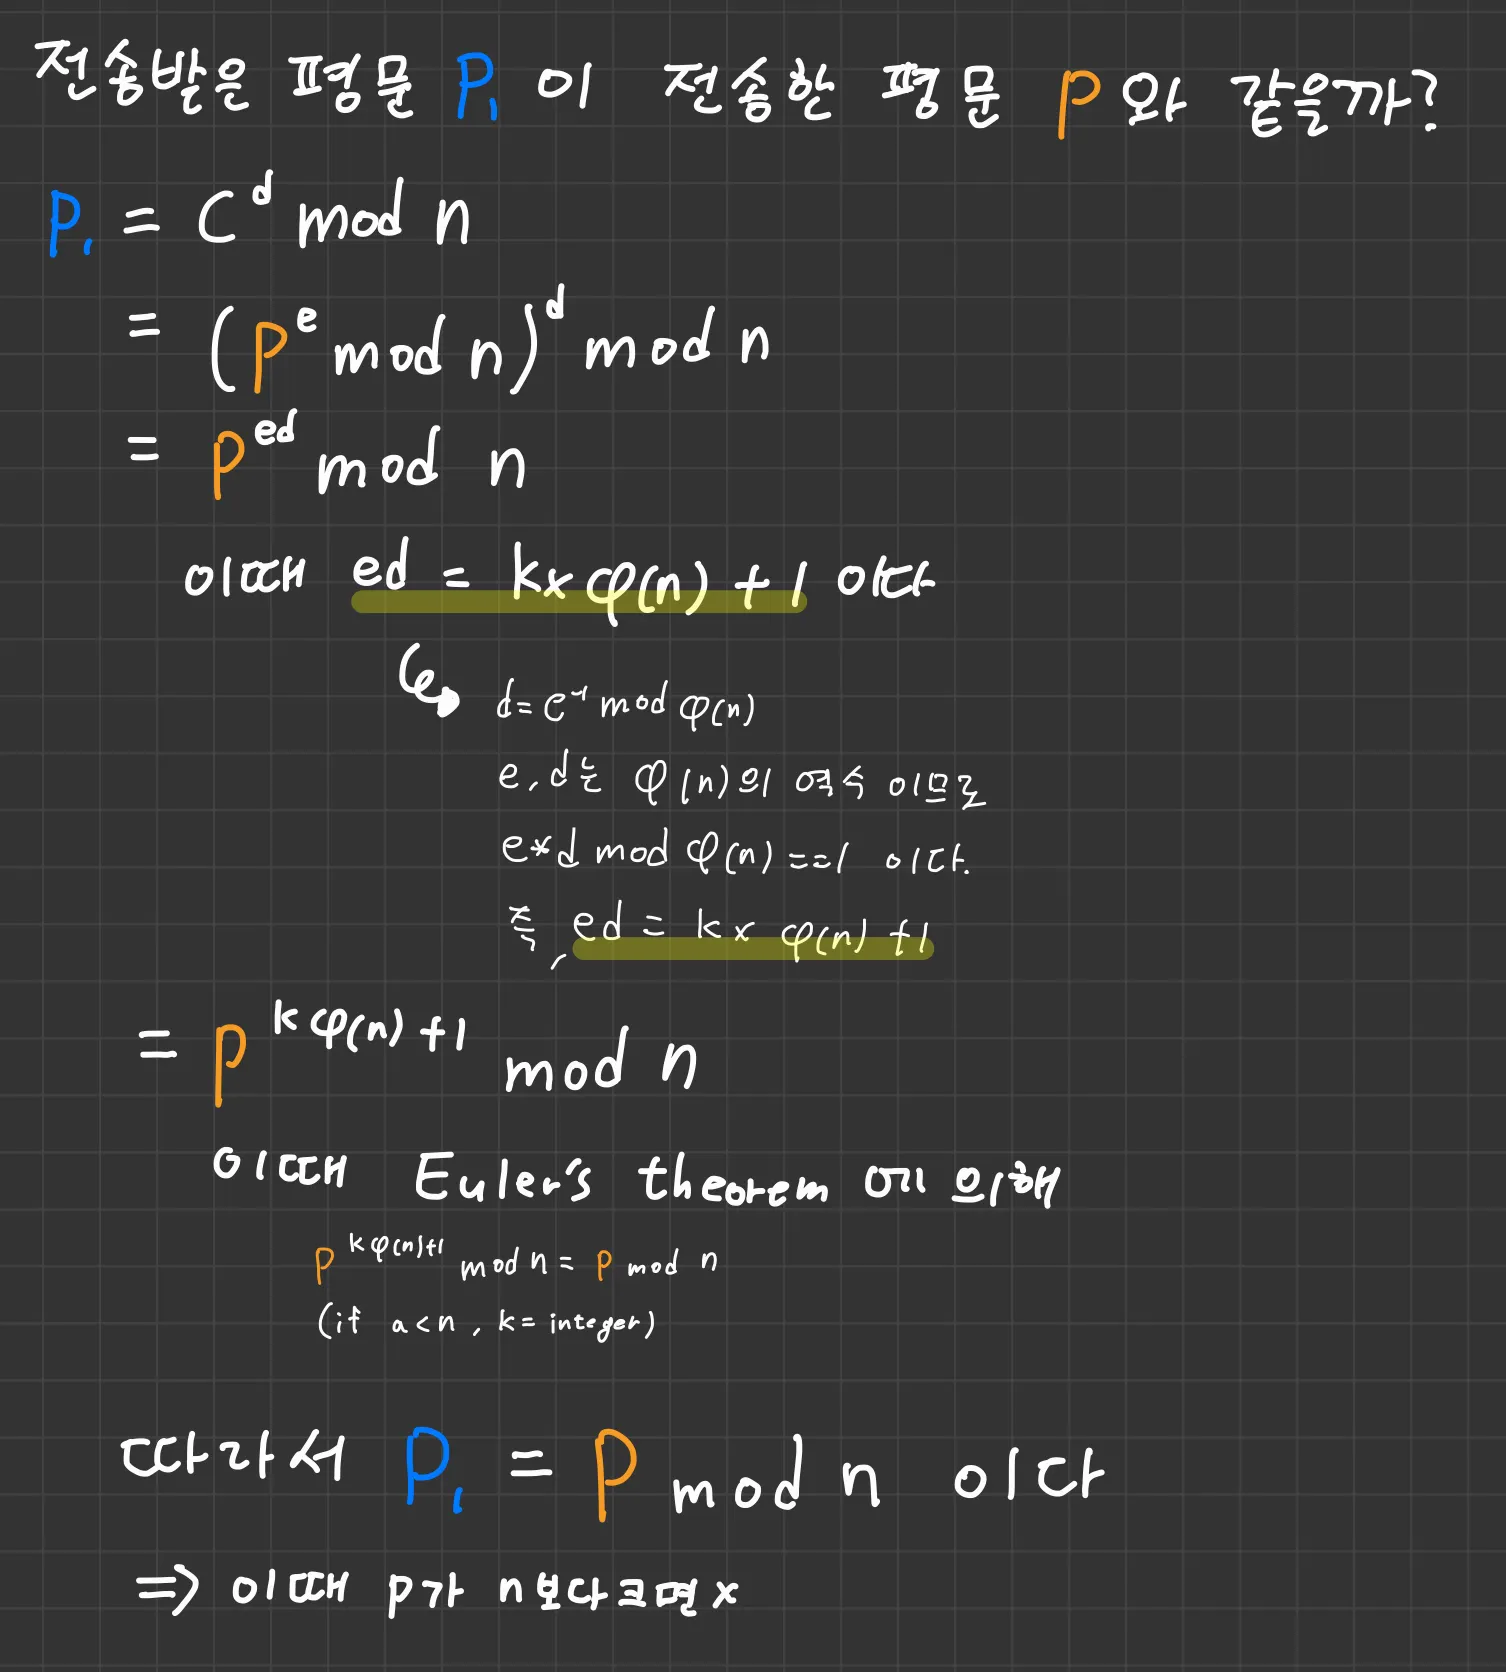 전송받은 평문 P₁ 이 전송한 평문 P 와 같을까?
P₁ = C^d mod n
= (P^e mod n)^d mod n
= P^ed mod n
이때 ed = k× φ(n) + 1 이다
d = e^-1 mod φ(n)
e, d는 φ(n)의 역수 이므로
e*d mod φ(n) == 1 이다.
즉, ed = k × φ(n) +1
= P^kφ(n)+1 mod n
이때 Euler's theorem 에 의해
P^kφ(n)+1 mod n = P mod n
(if a<n, k= integer)
따라서 P₁ = P mod n 이다
⇒ 이때 P가 n보다크면 x